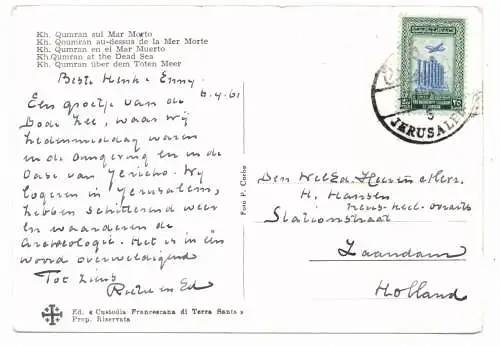 Kh. Qumran sul Mar Morto
Kh. Qoumran au-dessus de la Mer Morte
Kh. Qumran en el Mar Muerto
Kh. Qumran at the Dead Sea
Kh. Qumran über dem Toten Meer
Beste Henk + Enny,
6.4.61
Een groetje van de
Dode Zee, waar wij
hedenmiddag waren
in de omgeving en in de
Oase van Jericho. Wij
logeren in Jerusalem,
hebben schitterend weer
en waarderen de
Archeologie. Het is in één
woord overweldigend
Tot ziens
en Ed
Foto P. Corbo
Ed. « Custodia Francescana di Terra Santa »
Prop. Riservata
JERUSALEM
Den WelEd. Heer
H. Hansen
Stationstraat
Zaandam
Holland